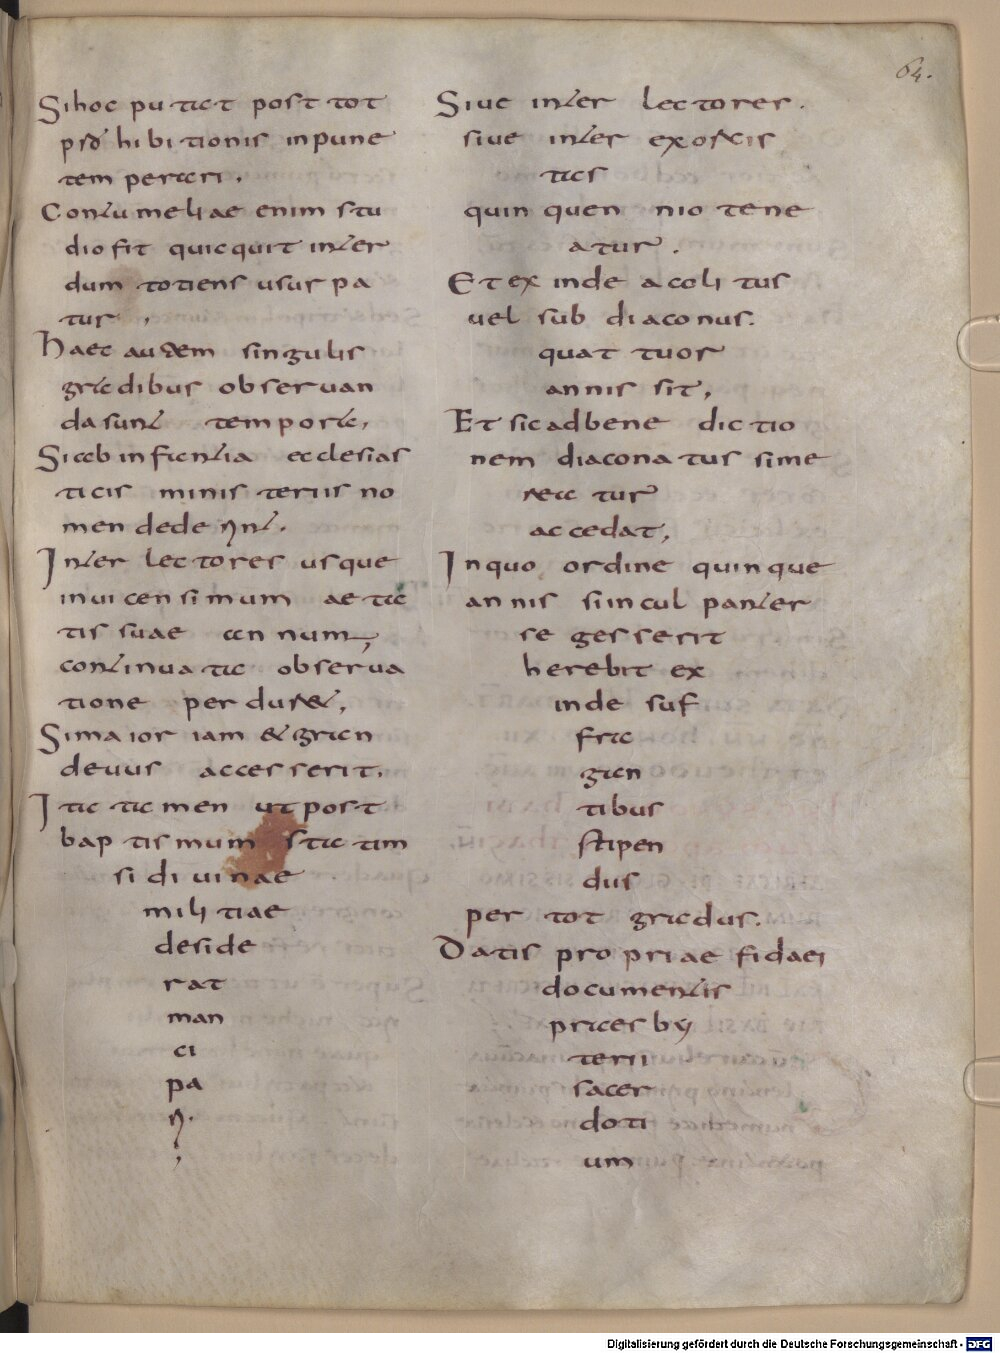 64.
Sihoc putat post tot
prohibitionis inpune
temperari.
Contumeliae enim stu
dio fit quicquit inter
dum totiens usurpa
tur,
Haec autem singulis
gradibus observan
da sunt tempora,
Si ab infantia ecclesias
ticis ministeriis no
men dederint.
Inter lectores usque
in vicensimum aeta
tis suae annum,
continuata observa
tione perduret,
Si maior iam et gran
devus accesserit,
Ita tamen ut post
baptismum statim
si divinae
militiae
deside
rat
man
ci
pa
ri.
Sive inter lectores.
sive inter exorcis
tas
quinquennio tene
atur.
Et exinde acolitus
vel subdiaconus.
quattuor
annis sit,
Et sic ad benedictio
nem diaconatus si me
retur
accedat,
In quo ordine quinque
annis si inculpanter
se gesserit
herebit ex
inde suf
fra
gan
tibus
stipen
dus
per tot gradus.
Datis propriae fidaei
documentis
praesby
terii
sacer
doti
um
Digitalisierung gefördert durch die Deutsche Forschungsgemeinschaft - DFG